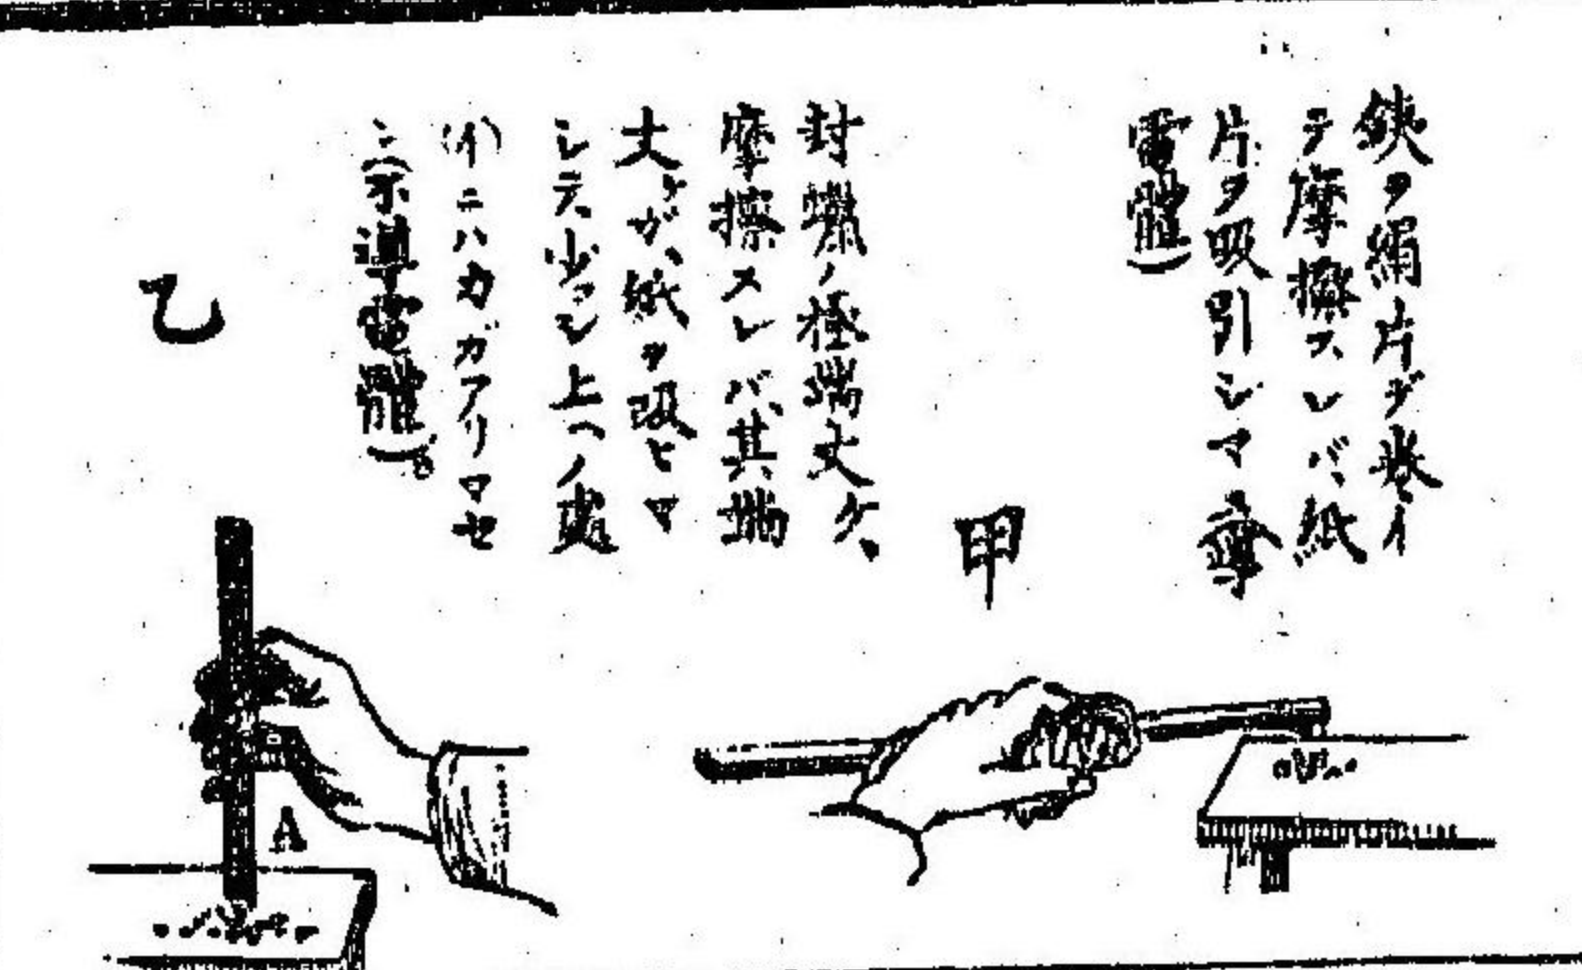 鉄ヲ絹片デ巻イ
テ摩擦スレバ、紙
片ヲ吸引シマ (導
電體)
甲
封蠟ノ極端丈ケ、
摩擦スレバ、其端
丈ケガ、紙ヲ吸ヒマ
シテ、少シ上ヘノ處
(イ)ニハカガアリマセ
ン(不導電體)。
乙
A